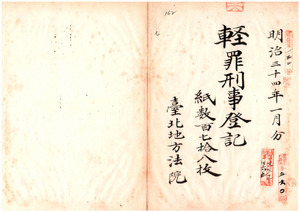 明治三十四年一月分
軽罪刑事登記
紙数百七拾八枚
臺北地方法院
162